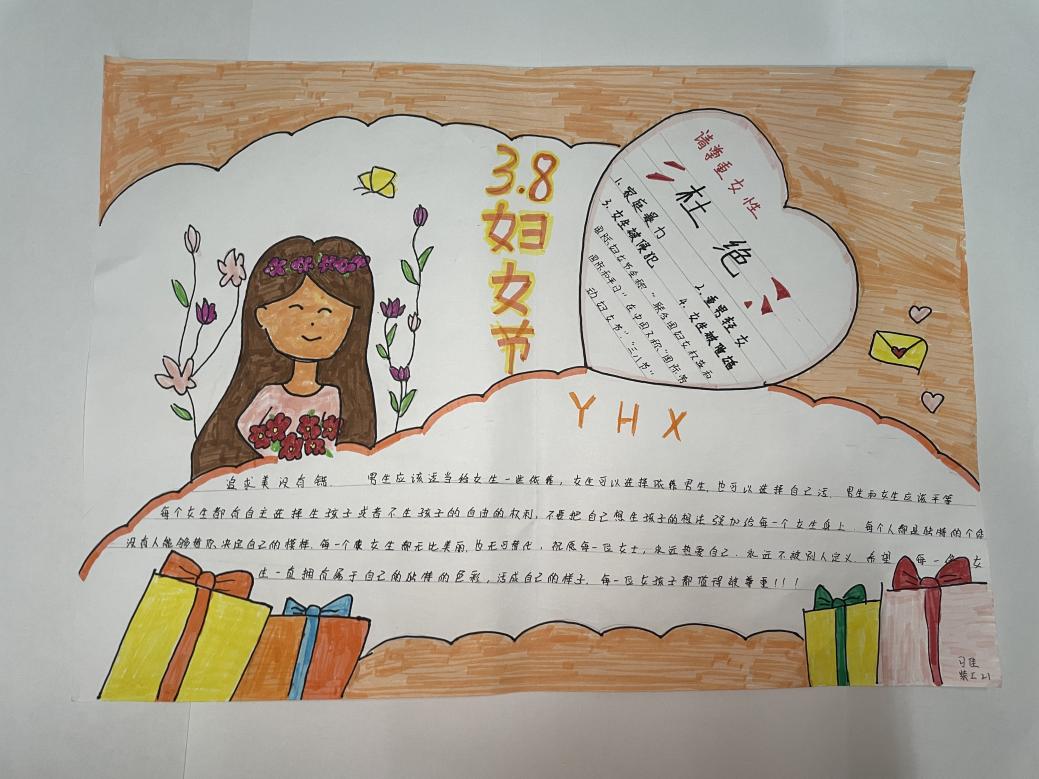 3.8
妇
女
节
请尊重女性
杜绝
1.家庭暴力
2.重男轻女
3.女生被侵犯
4.女生被催婚
国际妇女节全称"联合国妇女权益和
国际和平日"在中国又称"国际劳
动妇女节","三八节"
Y H X
追求美没有错 男生应该适当给女生一些依靠,女生可以选择依靠男生,也可以选择自己活.男生和女生应该平等
每个女生都有自主选择生孩子或者不生孩子的自由的权利,不要把自己想生孩子的想法强加给每一个女生身上.每个人都是独特的个体
没有人能够替你决定自己的模样.每一个女生都无比美丽,也无可替代,祝愿每一位女士,永远热爱自己.永远不被别人定义.希望 每一 女
生一直拥有属于自己的独特的色彩,活成自己的样子.每一位女孩子都值得被尊重!!!
习佳
装工21